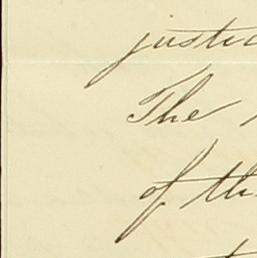 justic
The
of th